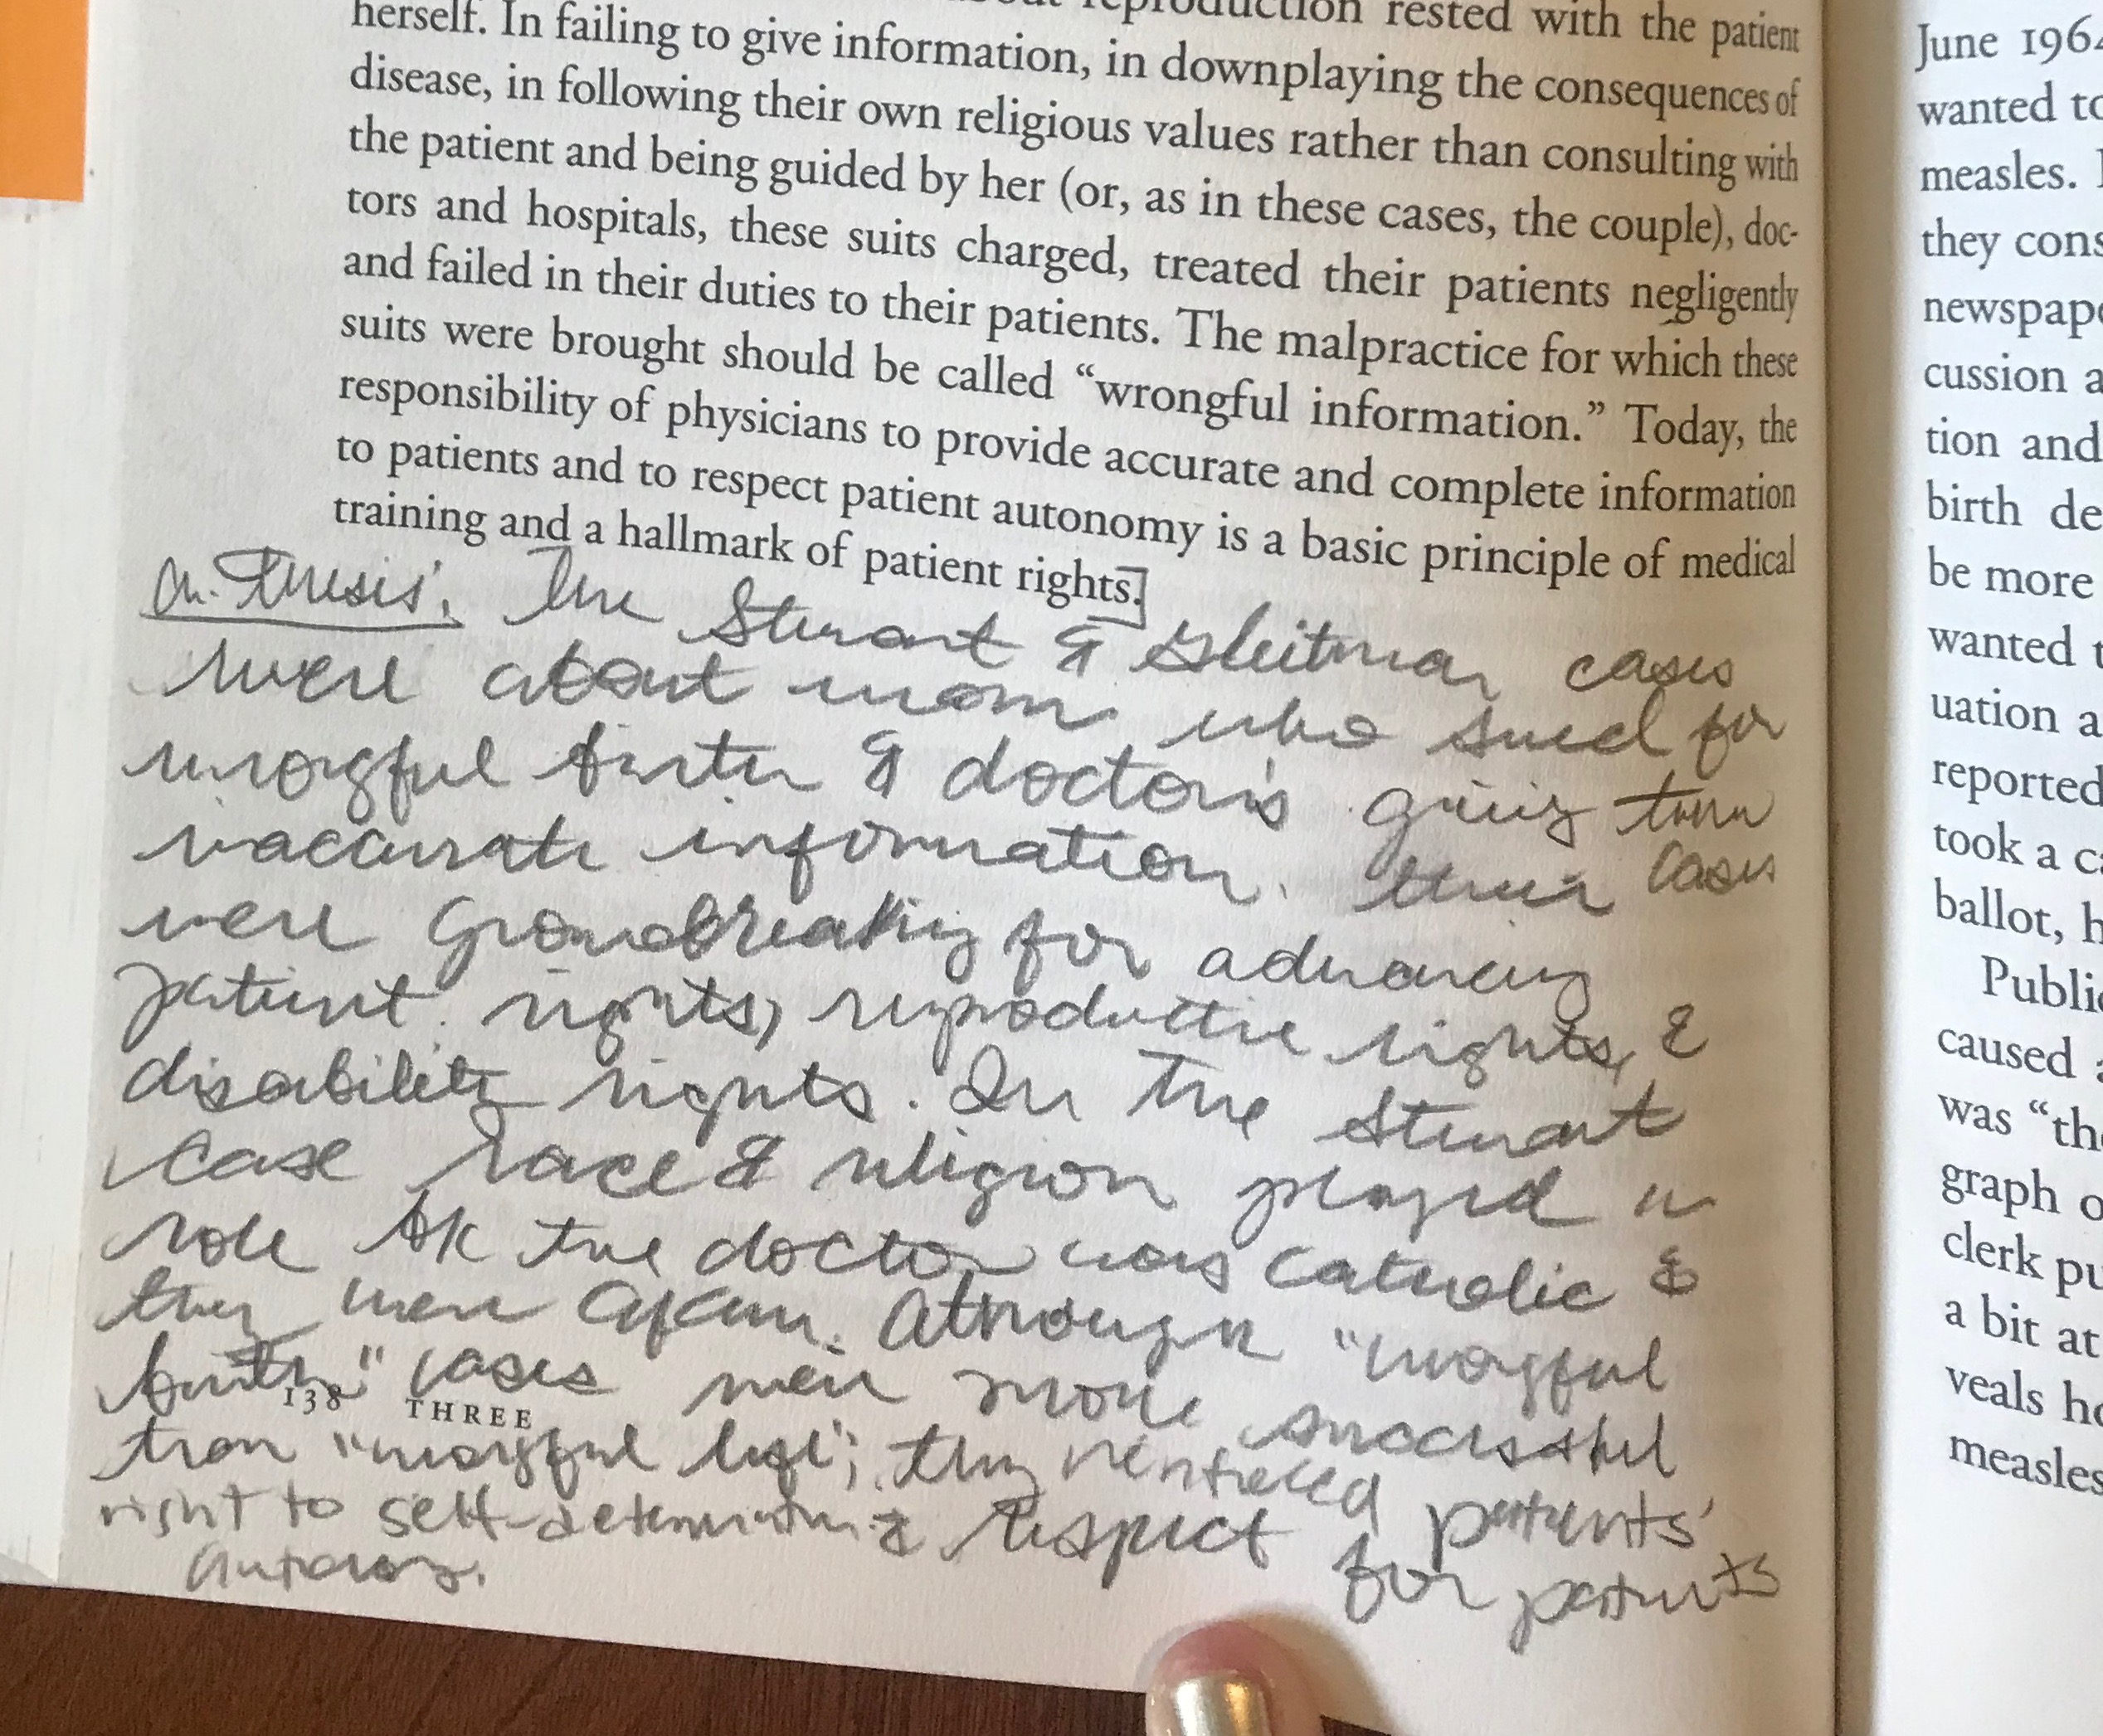 reproduction rested with the patient
herself. In failing to give information, in downplaying the consequences of
disease, in following their own religious values rather than consulting with
the patient and being guided by her (or, as in these cases, the couple), doc-
tors and hospitals, these suits charged, treated their patients negligently
and failed in their duties to their patients. The malpractice for which these
suits were brought should be called “wrongful information.” Today, the
responsibility of physicians to provide accurate and complete information
to patients and to respect patient autonomy is a basic principle of medical
training and a hallmark of patient rights.]
Ch. Thesis: The Stewart & Gleitman cases
were about mom who sued for
wrongful birth & doctor's giving them
inaccurate information. Their cases
were groundbreaking for advancing
patient rights, reproductive rights, &
disability rights. In the Stewart
case race & religion played a
role bk the doctor was Catholic &
they were AfAm. Although "wrongful
birth" cases were more successful
138 THREE
than "wrongful life"; they
patients'
right to self-determination & respect for patients
autonomy.
June 196
wanted to
measles.
they cons
newspap
cussion a
tion and
birth de
be more
wanted t
uation a
reported
took a c
ballot, h
Public
caused
was “th
graph o
clerk pu
a bit at
veals ho
measles